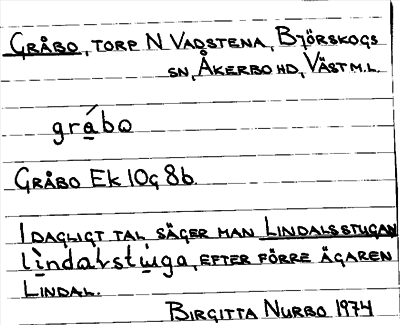 GRÅBO, TORP N VADSTENA, BJÖRSKOGS
SN, ÅKERBO HD, VÄSTM.L.
grá̱bo
GRÅBO EK 10g 8b
I DAGLIGT TAL SÄGER MAN LINDALSSTUGAN
lì̱ndaɫstu̱̇ga, EFTER FÖRRE ÄGAREN
LINDAL.
BIRGITTA NURBO 1974